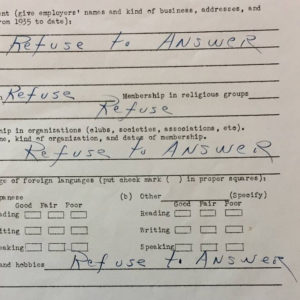 ent (give employers' names and kind of business, addresses, and
rom 1935 to date):
Refuse to Answer
Refuse Membership in religious groups
Refuse
hip in organizations (clubs, societies, associations, etc).
me, kind of organization, and dates of membership.
Refuse to Answer
ge of foreign languages (put check mark ( ) in proper squares):
panese (b) Other (Specify)
Good Fair Poor Good Fair Poor
ading Reading
iting Writing
eaking Speaking
and hobbies Refuse to Answer